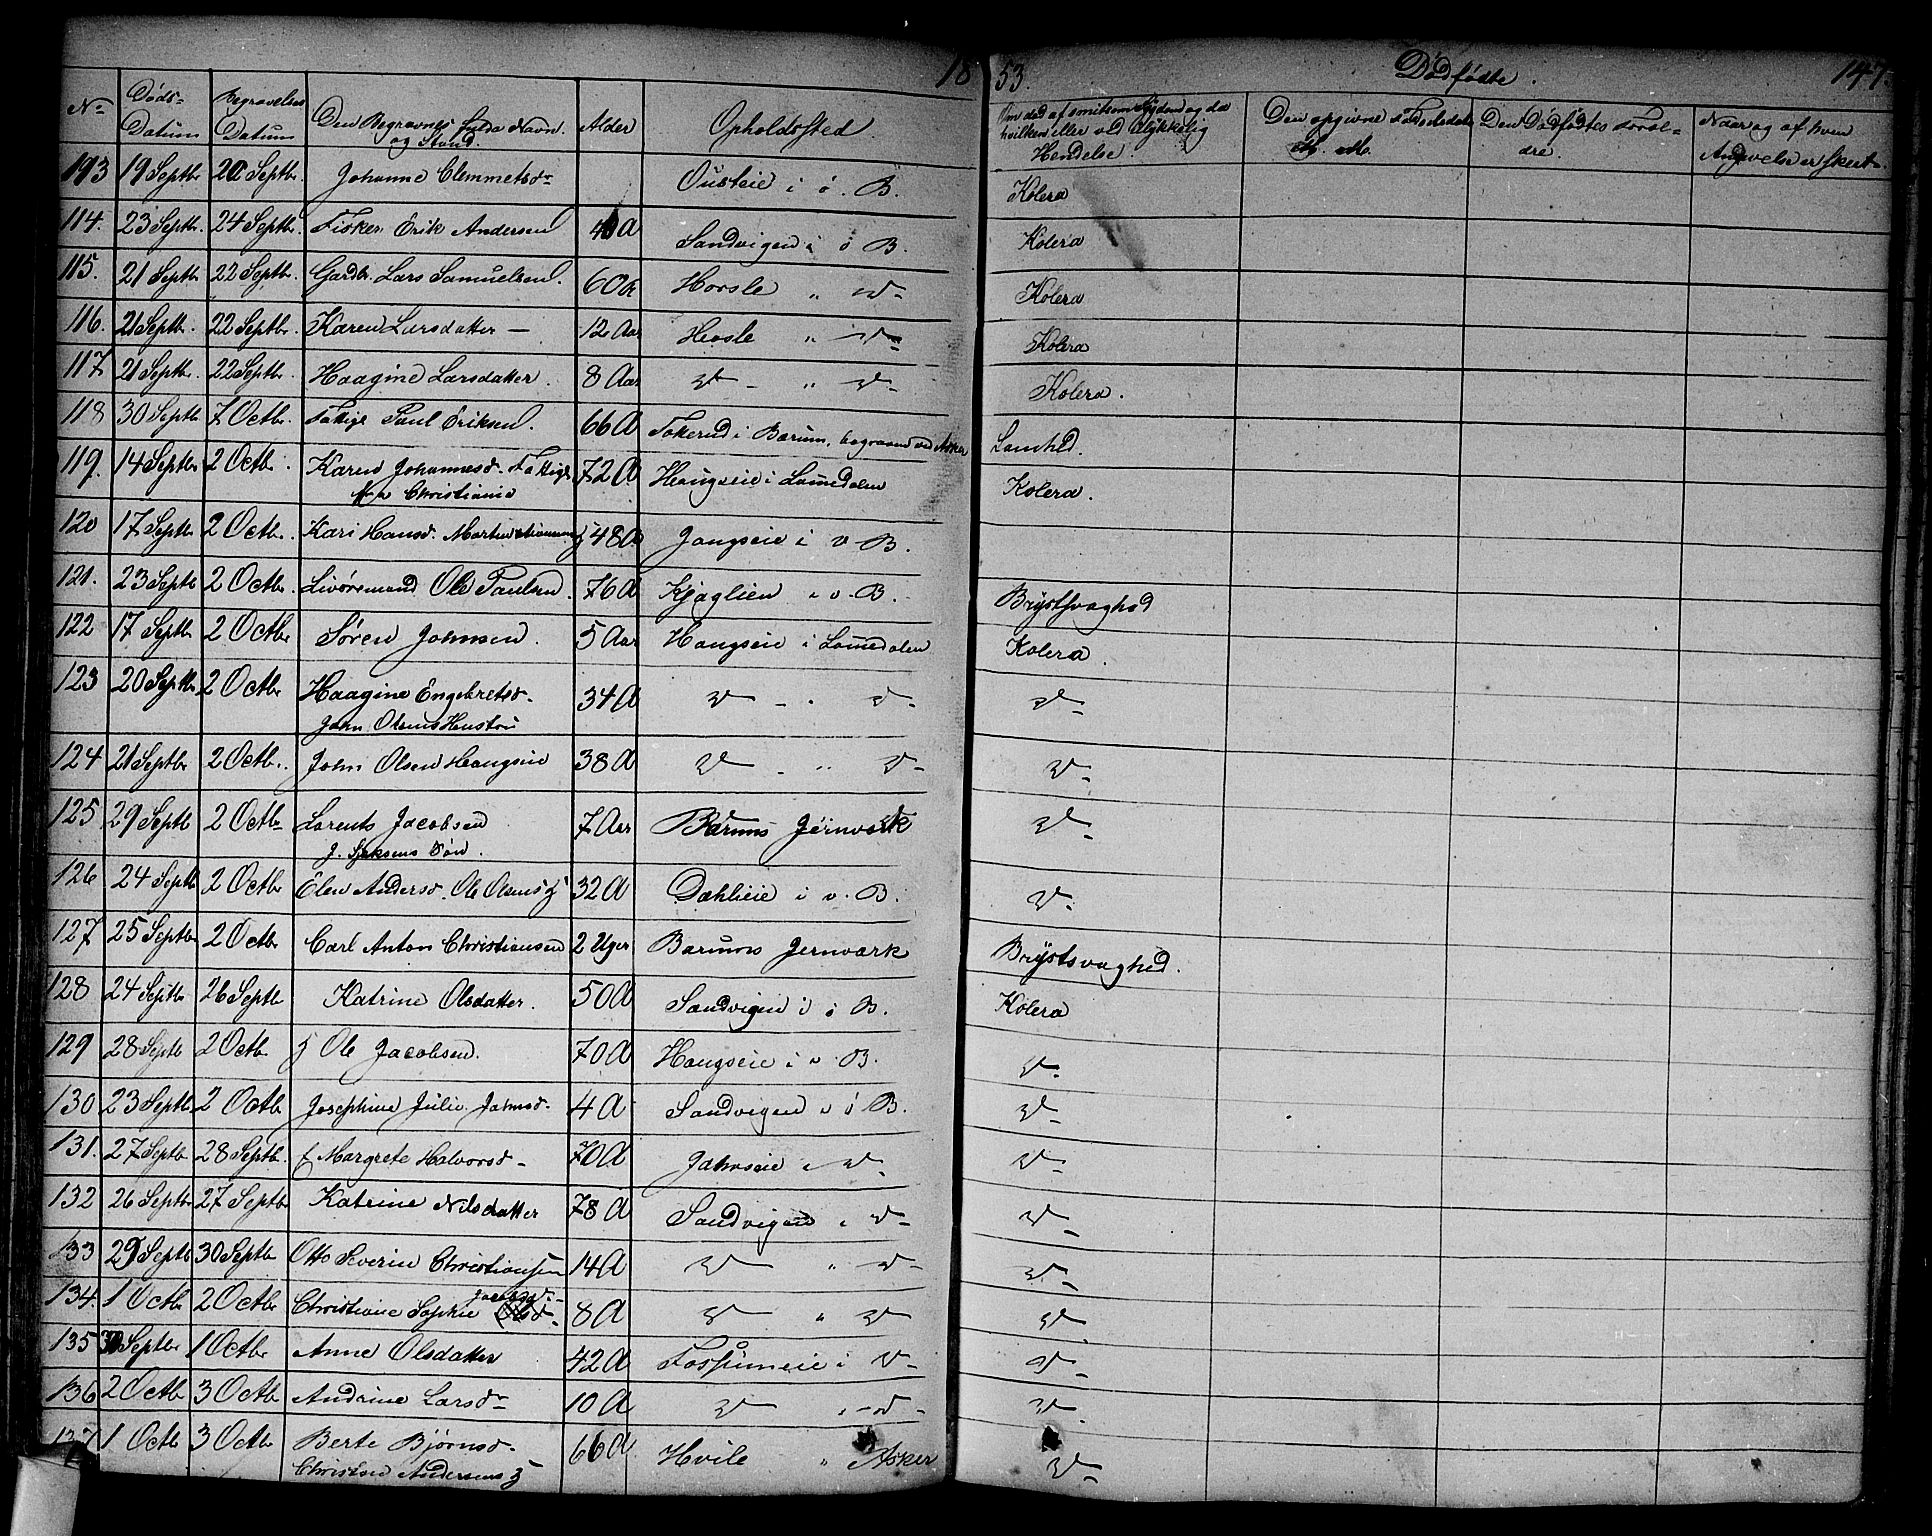 18 53. Dødfødte. 147
No Døds-Datum Begravelses Datum Den Begravnes fulde Navn og Stand. Alder Opholdssted. Om død af smitsom Sygdom og da hvilken eller ved Ulykkelig Hendelse. Den opgivne Fødselsdato M. M. Den Dødfødtes Foreldre. Naar og af hvem Angivelse er skeet
193 19 Septbr 20 Septbr. Johanne Clemmetsdr Ousteie i ø. B. Kolera
114. 23 Septbr. 24 Septbr. Fisker Erik Andersen 40 A Sandvigen i ø B. Kolera
115. 21 Septbr 22 Septbr. Gardbr. Lars Samuelsen. 60 A Horsle " Do Kolera
116. 21 Septbr. 22 Septbr. Karen Larsdatter — 12 Aar Horsle " Do Kolera
117 21 Septbr. 22 Septbr. Haagine Larsdatter. 8 Aar Do - " Do Kolera.
118 30 Septbr 7 Octbr. Fattige Paul Eriksen. 66 A Tokerud i Barum, begraven ved Asker Lamhed.
119. 14 Septbr 2 Octbr. Karen Johannesd. Fattige 72 A Haugseie i Lomedalen Kolera.
fra Christiania
120 17 Septbr 2 Octbr. Kari Hansd. 48 A Jongseie i v B.
121. 23 Septbr 2 Octbr. Livøremand Ole Paulsen. 76 A Kjaglien i v. B. Brystsvaghed
122 17 Septbr 2 Octbr Søren Johnsen. 5 Aar Haugseie i Lomedalen Kolera.
123 20 Septbr 2 Octbr Haagine Engebretsd. 34 A Do - . Do Do
John Olsens Hustru
124 21 Septbr 2 Octbr. John Olsen Haugseie 38 A Do - " Do Do
125 29 Septbr 2 Octbr Lorents Jacobsen 7 Aar Barums Jernvark Do
Søn.
126 24 Septbr 2 Octbr Elen Andersd. Ole Olsens 32 A Dæhlieie i v. B. Do
127 25 Septbr 2 Octbr Carl Anton Christiansen 2 Uger Barums Jernvark Brystsvaghed.
128 24 Septbr 26 Septbr Katrine Olsdatter. 50 A Sandvigen i ø B. Kolera
129 28 Septbr 2 Octbr Ole Jacobsen. 70 A Haugseie i v. B. Do
130 23 Septbr 2 Octbr Josephine Julie Johnsd. 4 A Sandvigen i ø B. Do
131. 27 Septbr 28 Septbr. f Margrete Halvorsd 70 A Johnseie i Do Do
132 26 Septbr 27 Septbr. Katrine Nilsdatter 78 A Sandvigen i Do Do
133 29 Septbr 30 Septbr Otto Severin Christiansen 14 A Do " Do Do
134. 1 Octbr 2 Octbr Christiane Sophie Jacobsd. 8 A Do " Do Do
135 30 Septbr 1 Octbr Anne Olsdatter 42 A Fossumeie i Do Do
136 2 Octbr 3 Octbr Andrine Larsd 10 A Do i Do Do
137 1 Octbr 3 Octbr Berte Bjørnsd. 66 A Hvile " Asker Do
Christen Andersens